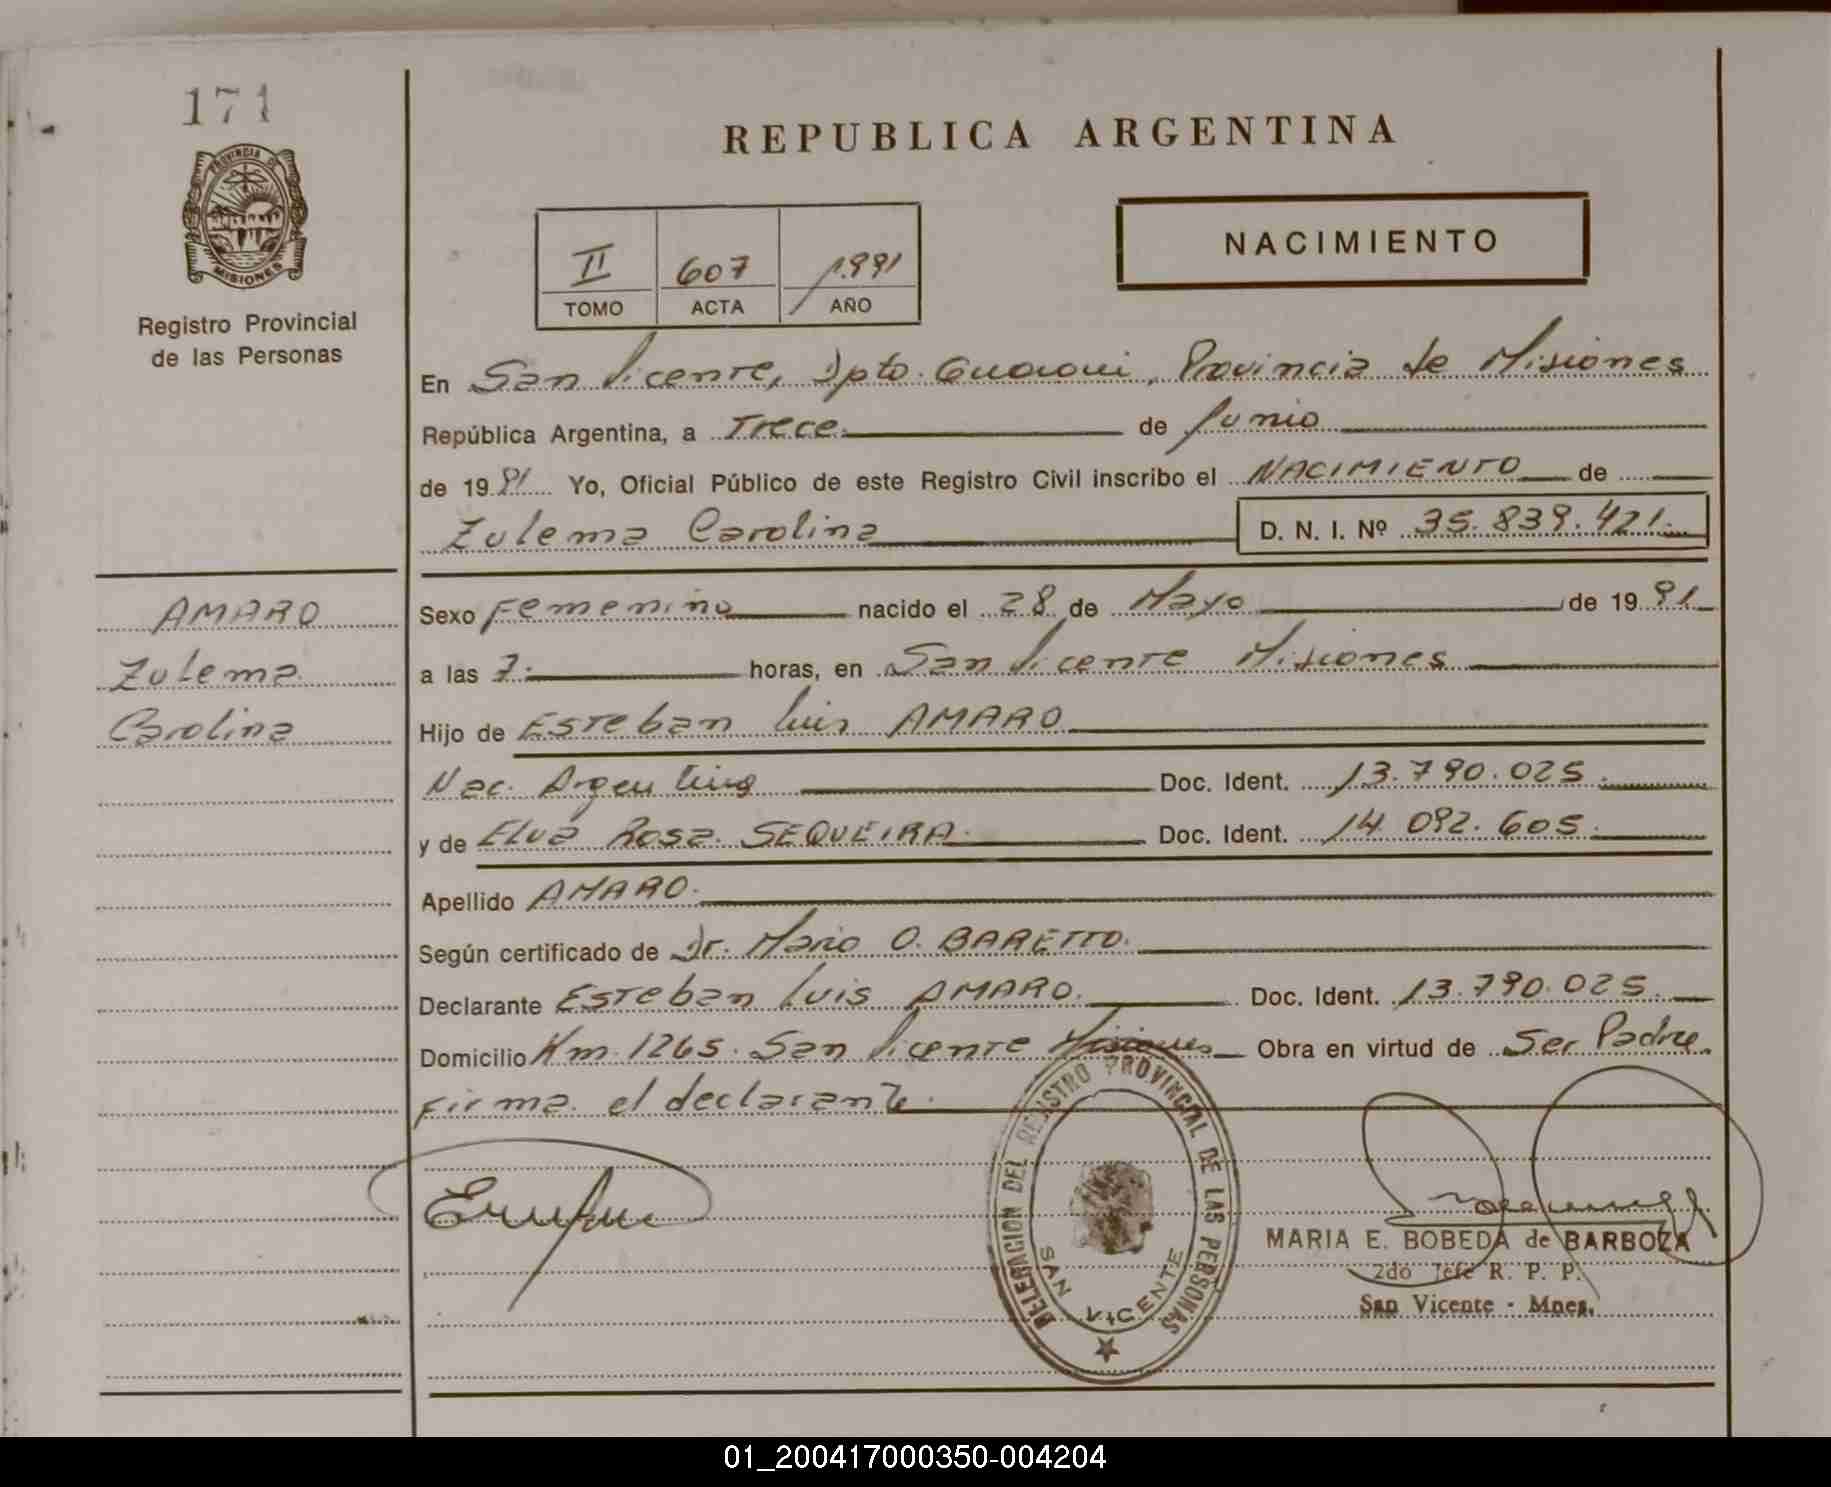 171
PROVINCIA DE
MISIONES
Registro Provincial
de las Personas
REPUBLICA ARGENTINA
II 607 1.991
TOMO ACTA AÑO
NACIMIENTO
En San Vicente, Dpto. Guarani, Provincia de Misiones
República Argentina, a Trece. de Junio
de 1991 Yo, Oficial Público de este Registro Civil inscribo el NACIMIENTO de
Zulema Carolina D. N. I. Nº 35.839.421.
AMARO
Zulema
Carolina
Sexo Femenino nacido el 28 de Mayo de 1991
a las 7. horas, en San Vicente Misiones
Hijo de Esteban Luis AMARO
Nac. Argentina Doc. Ident. 13.790.025.
y de Elva Rosa SEQUEIRA. Doc. Ident. 14.092.605.
Apellido AMARO.
Según certificado de Dr. Mario O. BARETTO.
Declarante Esteban Luis AMARO. Doc. Ident. 13.790.025.
Domicilio Km. 1265. San Vicente Misiones Obra en virtud de Ser Padre.
Firma el declarante.
DELEGACION DEL REGISTRO PROVINCIAL DE LAS PERSONAS
SAN VICENTE
MARIA E. BOBEDA de BARBOZA
2do Jefe R. P. P.
San Vicente - Mnes.
01_200417000350-004204